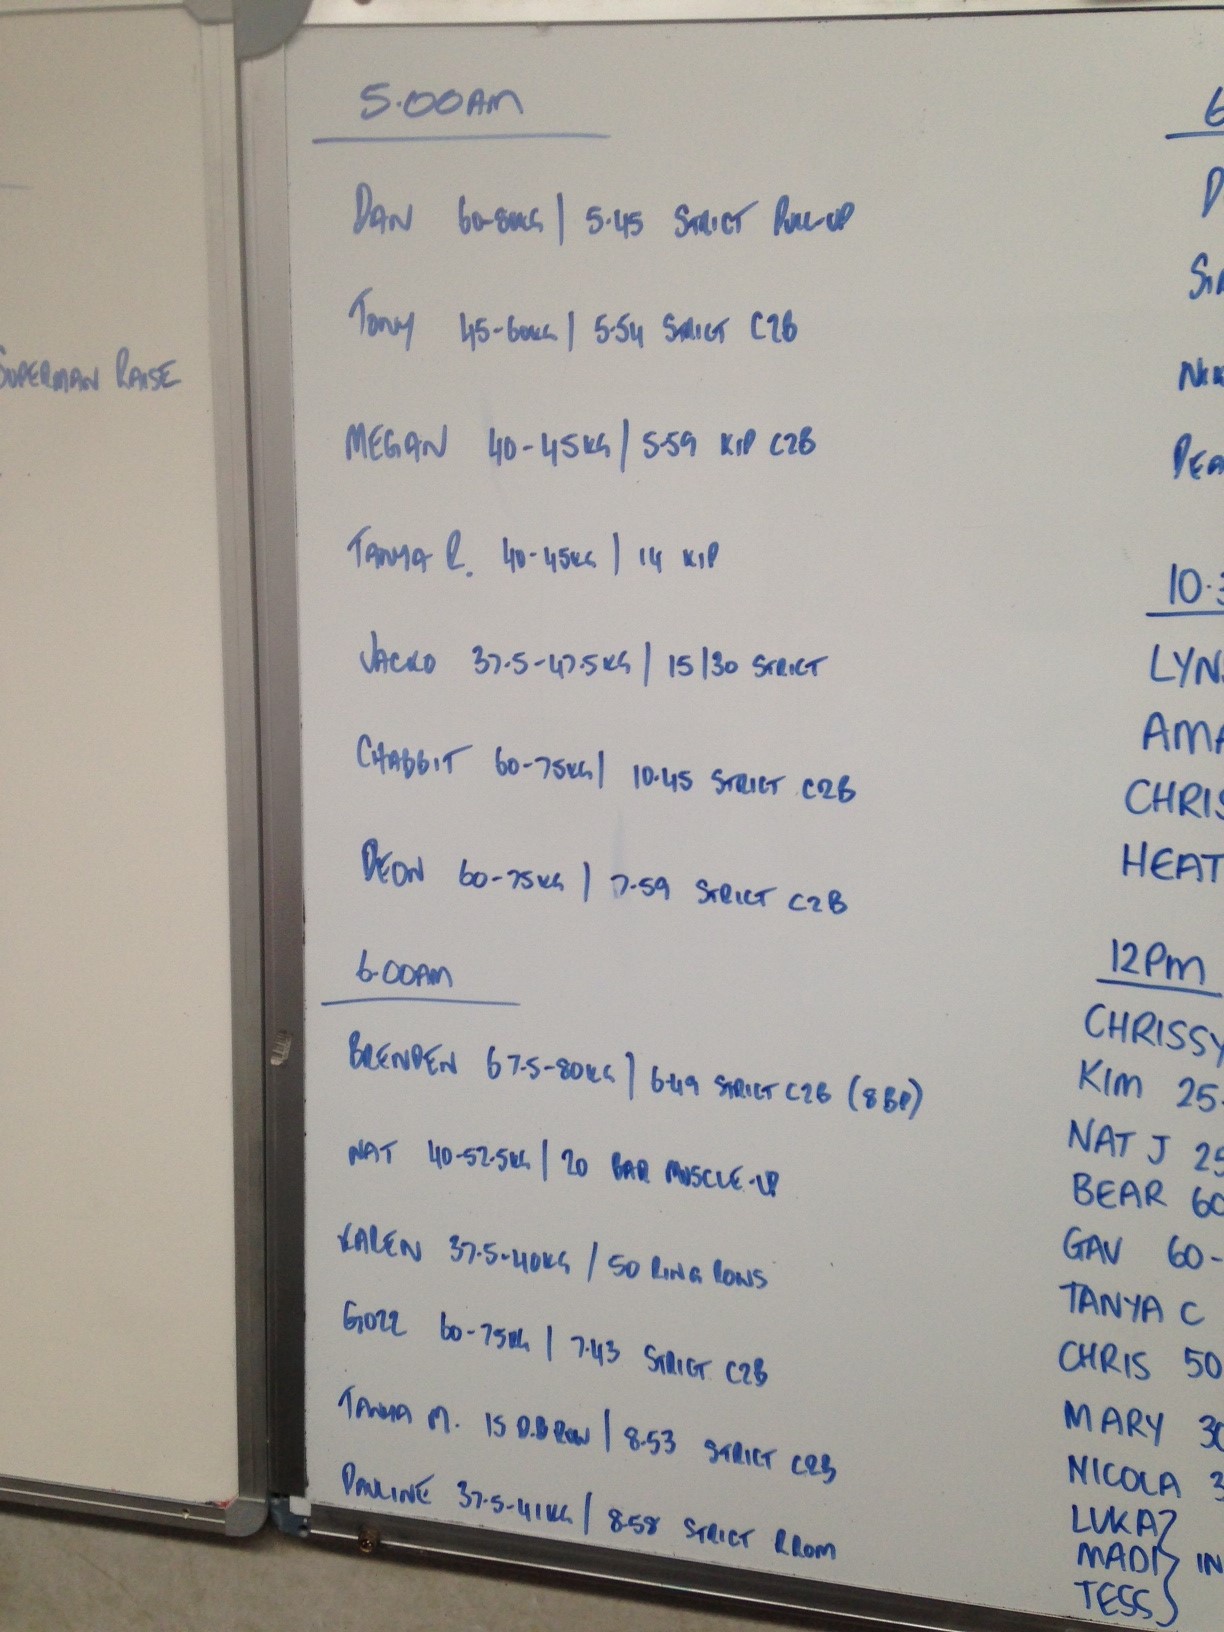 SUPERMAN RAISE
5.00AM
DAN 60-80KG | 5.45 STRICT PULL-UP
TONY 45-60KG | 5.54 STRICT C2B
MEGAN 40-45KG | 5.59 KIP C2B
TANYA R. 40-45KG | 14 KIP
JACKO 37.5-47.5KG | 15/30 STRICT
CHABBIT 60-75KG | 10.45 STRICT C2B
DEON 60-75KG | 7.59 STRICT C2B
6.00AM
BRENDEN 67.5-80KG | 6.49 STRICT C2B (8BP)
NAT 40-52.5KG | 20 BAR MUSCLE-UP
KAREN 37.5-40KG / 50 RING ROWS
GOZZ 60-75KG | 7.43 STRICT C2B
TANYA M. 15 D.B ROW | 8.53 STRICT C2B
PAULINE 37.5-41KG | 8.58 STRICT RROM
6
D
NIK
PEA
10.3
LYN
AMA
CHRIS
HEAT
12PM
CHRISSY
KIM 25
NAT J 25
BEAR 60
GAV 60-
TANYA C
CHRIS 50
MARY 30
NICOLA 3
LUKA }
MADI } IN
TESS }